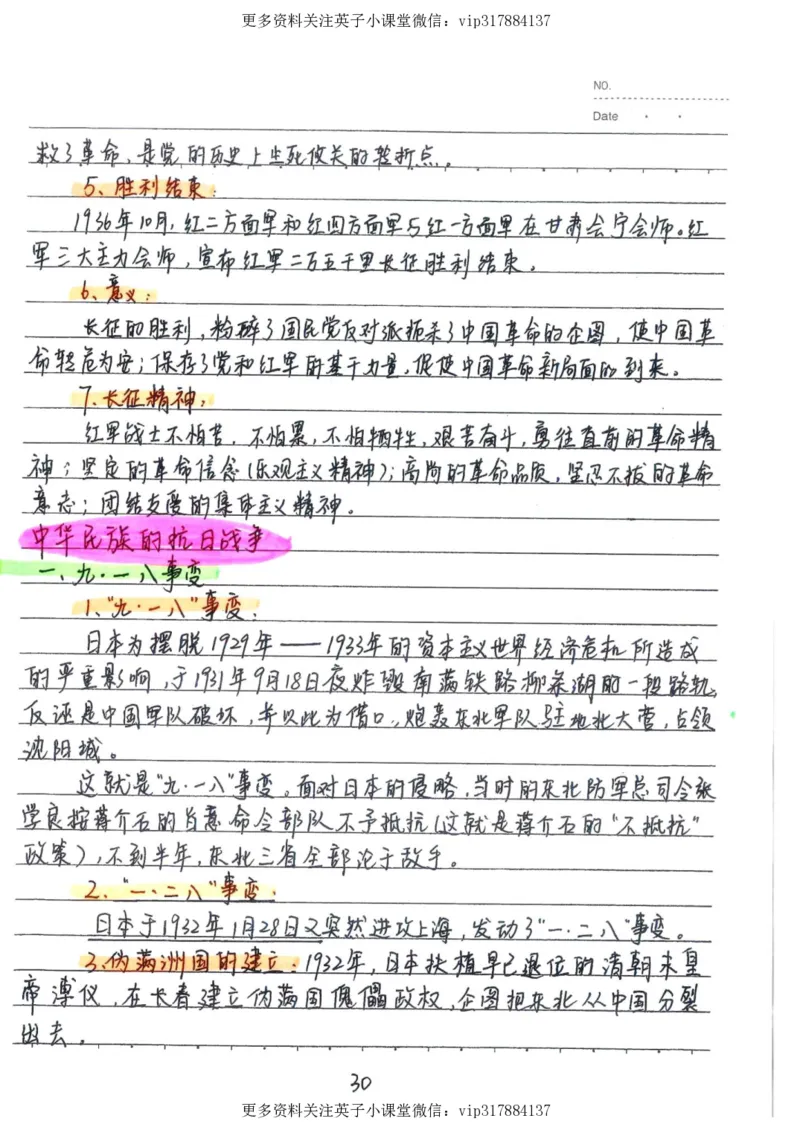 更多资料关注英子小课堂微信：vip317884137
NO.
Date
救了革命、是党的历史上生死攸关的转折点。
5、胜利结束：
1936年10月，红二方面军和红四方面军与红一方面军在甘肃会宁会师。红
军三大主力会师，宣布红军二万五千里长征胜利结束。
6、意义：
长征的胜利，粉碎了国民党反对派扼杀了中国革命的企图，使中国革
命转危为安；保存了党和红军的基干力量，促使中国革命新局面的到来。
7、长征精神：
红军战士不怕苦，不怕累，不怕牺牲，艰苦奋斗，勇往直前的革命精
神；坚定的革命信念(乐观主义精神)；高尚的革命品质，坚忍不拔的革命
意志；团结友爱的集体主义精神。
中华民族的抗日战争
一、九·一八事变
1、"九·一八"事变：
日本为摆脱1929年——1933年的资本主义世界经济危机所造成
的严重影响，于1931年9月18日夜炸毁南满铁路柳条湖的一段路轨，
反诬是中国军队破坏，并以此为借口，炮轰东北军队驻地北大营，占领
沈阳城。
这就是"九·一八"事变。面对日本的侵略，当时的东北防军总司令张
学良按蒋介石的旨意命令部队不予抵抗(这就是蒋介石的"不抵抗"
政策)，不到半年，东北三省全部沦于敌手。
2、"一·二八"事变：
日本于1932年1月28日又突然进攻上海，发动了"一·二八"事变。
3、伪满洲国的建立：1932年，日本扶植早已退位的清朝末皇
帝溥仪，在长春建立伪满国傀儡政权，企图把东北从中国分裂
出去。
30
更多资料关注英子小课堂微信：vip317884137